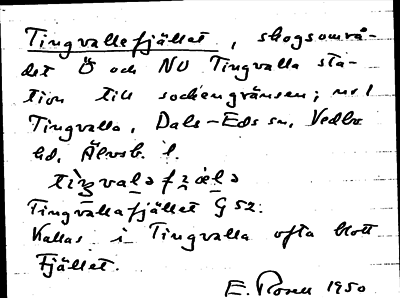 Tingvallefjället, skogsområ-
det Ö och NO Tingvalla sta-
tion till sockengränsen; nr 1
Tingvalla, Dals-Eds sn, Vedbo
hd, Älvsb. l.
Tingvallafjället G 52.
Kallas i Tingvalla ofta blott
Fjället.
E. Rosell 1950